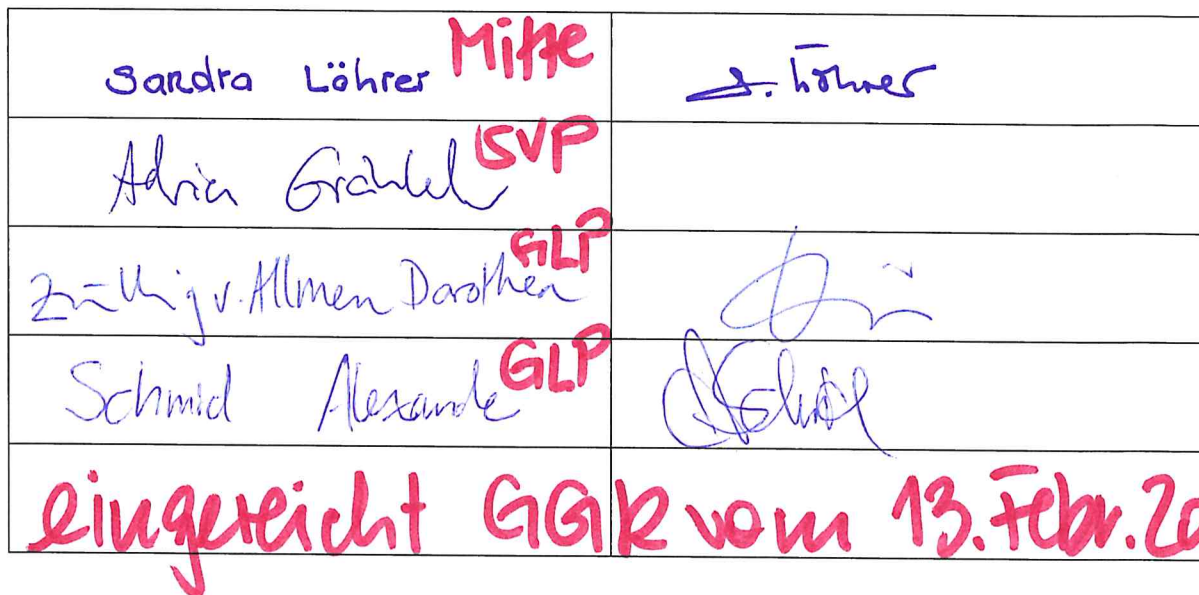 Sandra Löhrer Mitte S. Löhrer
Adrian SVP
Züllig v. Allmen Dorothea GLP
Schmid Alexander GLP
eingereicht GGR vom 13. Febr. 20